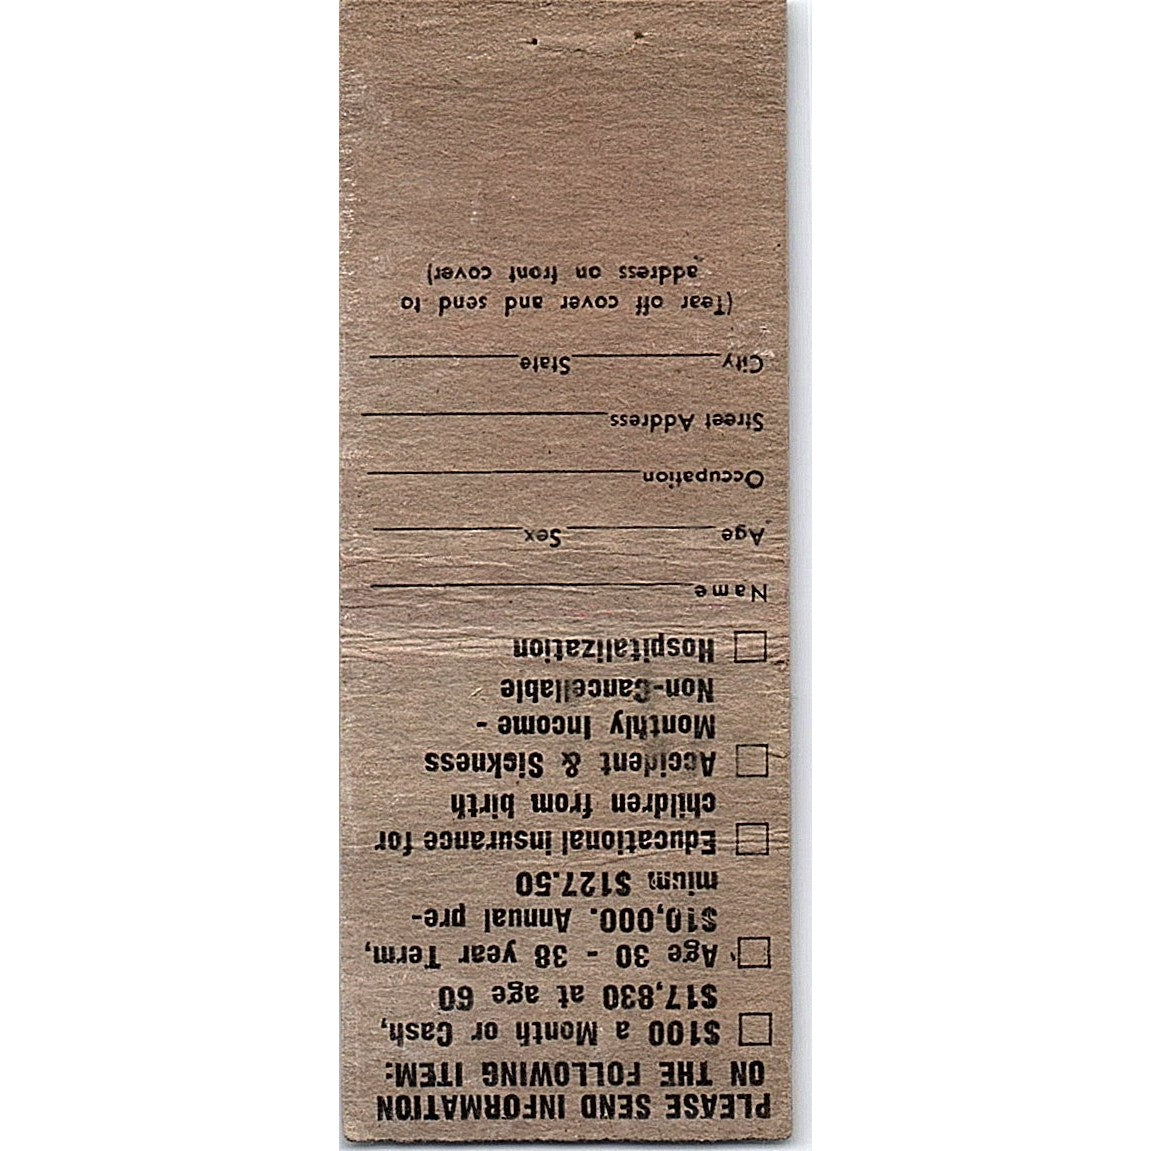 PLEASE SEND INFORMATION
ON THE FOLLOWING ITEM:
$100 a Month or Cash,
$17,830 at age 60
Age 30 - 38 year Term,
$10,000. Annual pre-
mium $127.50
Educational insurance for
children from birth
Accident & Sickness
Monthly Income -
Non-Cancellable
Hospitalization
Name
Age Sex
Occupation
Street Address
City State
(Tear off cover and send to
address on front cover)